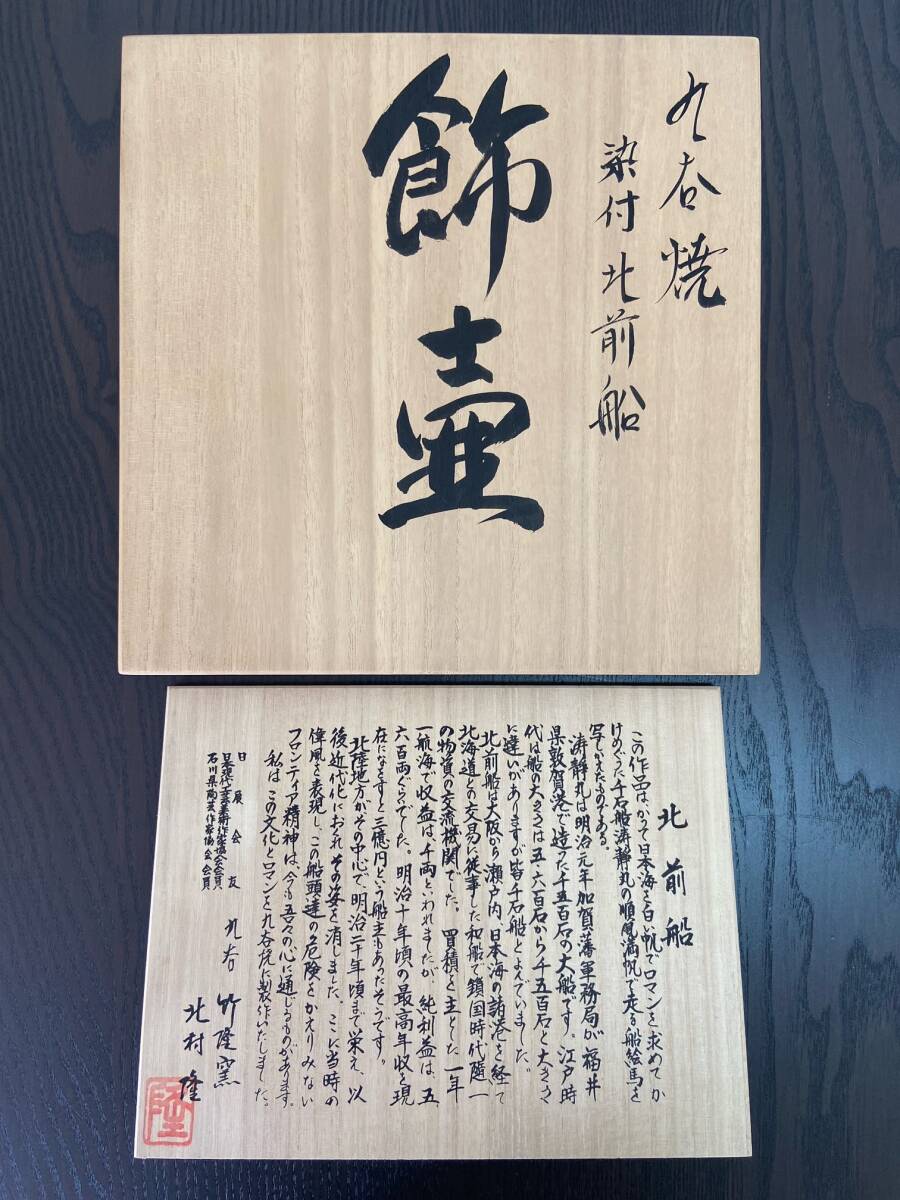 九谷焼
染付北前船
飾壷
北前船
この作品は、かつて日本海を白い帆でロマンを求めてか
けめぐった千石船涛静丸の順風満帆で走る船絵馬を
写しかえたものである。
涛静丸は明治元年加賀藩軍務局が福井
県敦賀港で造った千五百石の大船です。江戸時
代は船の大きさは五・六百石から千五百石と大きさ
に違いがありますが皆千石船とよんでいました。
北前船は大阪から瀬戸内、日本海の諸港を経て
北海道との交易に従事した和船で鎖国時代随一
の物資の交流機関でした。買積を主とした一年
一航海で収益は千両といわれましたが、純利益は、五、
六百両ぐらいでした。明治十年頃の最高年収を現
在になおすと三億円という船主もあったそうです。
北陸地方がその中心で、明治二十年頃まで栄え、以
後近代化におされその姿を消しました。ここに当時の
偉風を表現し、この船頭達の危険をかえりみない
フロンティア精神は、今も吾々の心に通じるものがあります。
私は この文化とロマンを九谷焼に製作いたしました。
日展会友
日本現代工芸美術作家協会会員
石川県陶芸作家協会会員
九谷 竹隆窯
北村 隆
隆